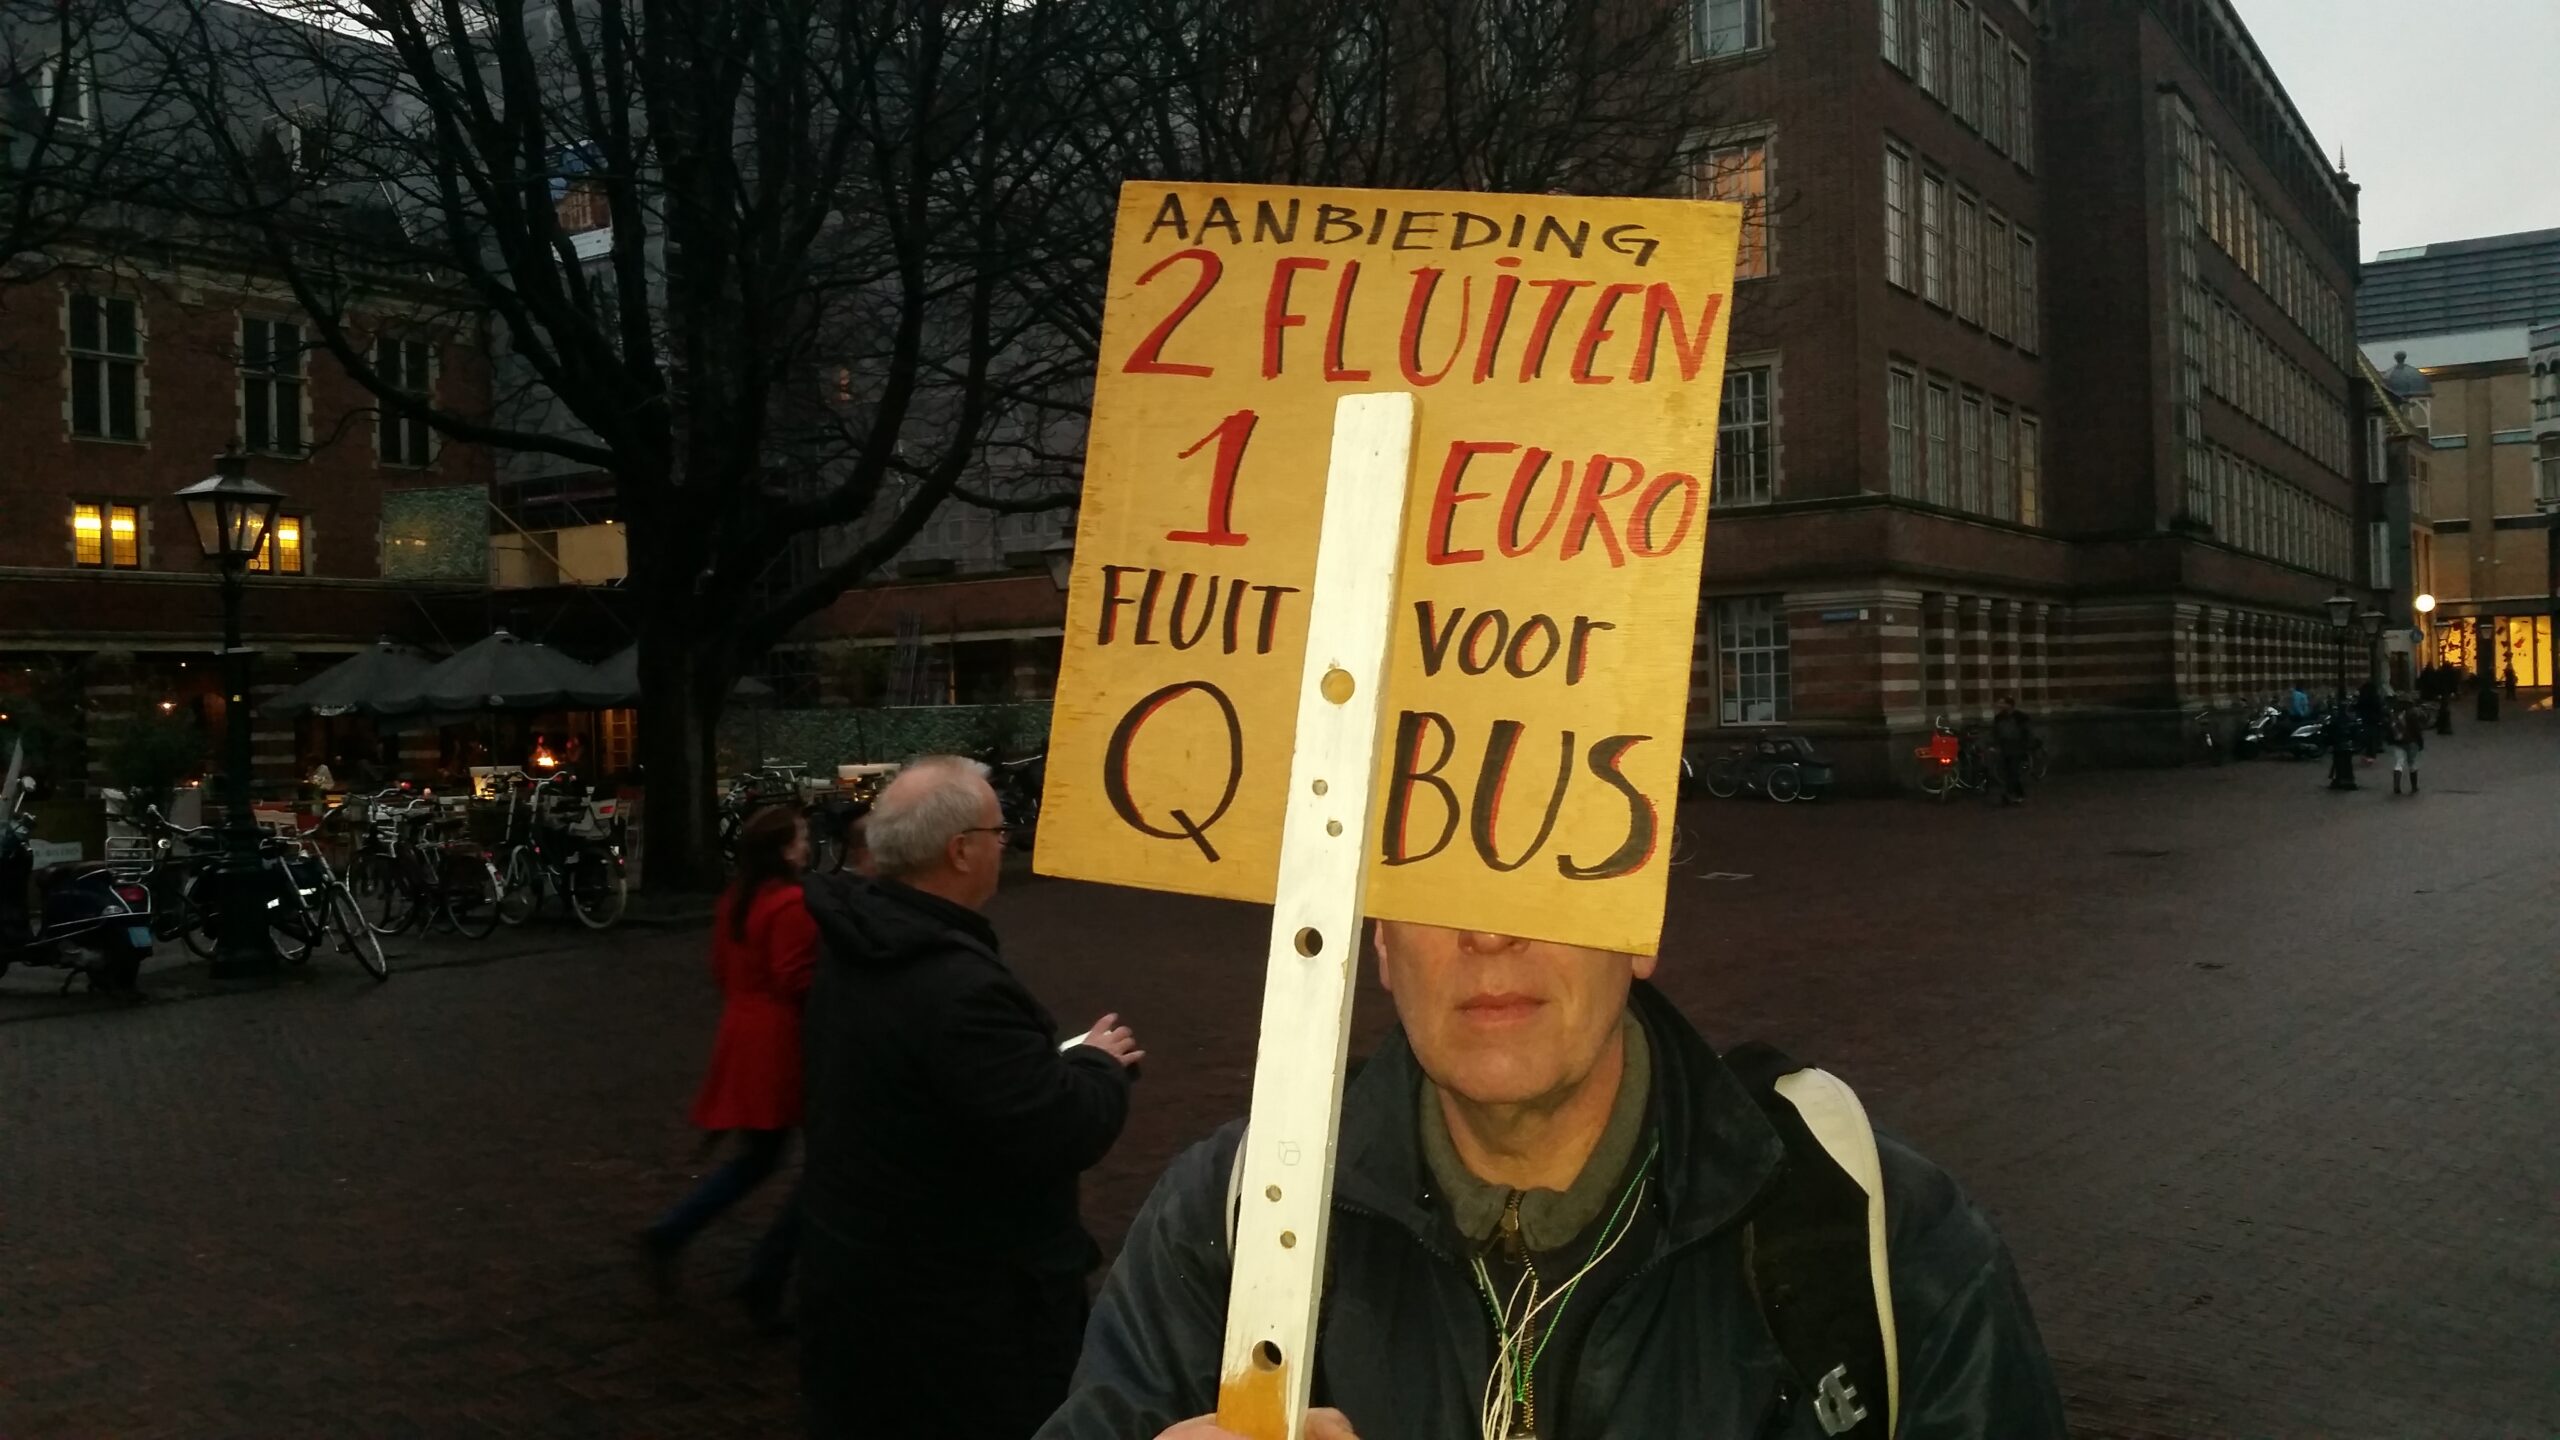 AANBIEDING
2 FLUiTEN
1 EURO
FLUIT voor
Q BUS